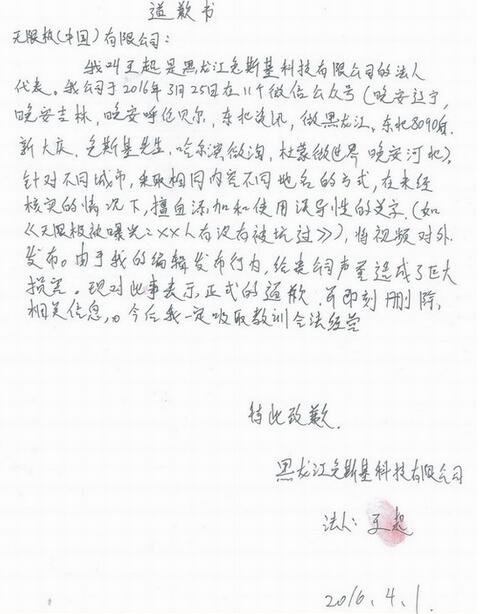 道歉书
无限极(中国)有限公司：
我叫王起是黑龙江克斯基科技有限公司的法人
代表。我公司于2016年3月25日在11个微信公众号(晚安辽宁,
晚安吉林,晚安呼伦贝尔,东北资讯,微黑龙江,东北8090后,
新大庆,克斯基先生,哈尔滨微淘,杜蒙微世界,晚安河北),
针对不同城市,采取相同内容不同地名的方式,在未经
核实的情况下,擅自添加和使用误导性的文字(如
《无限极被曝光：XX人有没有被坑过》),将视频对外
发布。由于我的编辑发布行为,给贵公司声誉造成了巨大
损害。现对此事表示正式的道歉,并即刻删除,
相关信息,。今后我一定吸取教训合法经营
特此致歉.
黑龙江克斯基科技有限公司
法人：王起
2016.4.1